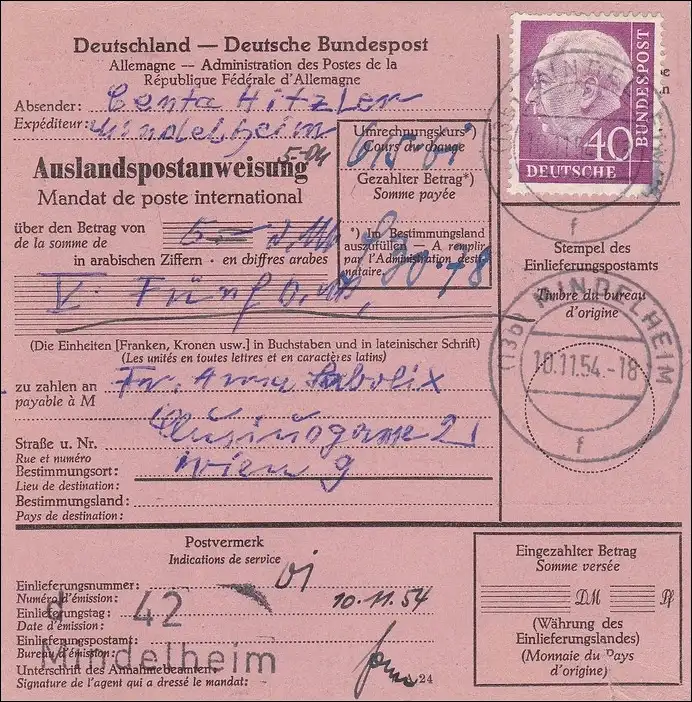 Deutschland — Deutsche Bundespost
Allemagne — Administration des Postes de la
République Fédérale d'Allemagne
Absender: Centa Hitzler
Expéditeur: Mindelheim
Auslandspostanweisung
Mandat de poste international
Umrechnungskurs
Cours du change
Gezahlter Betrag*)
Somme payée
*) Im Bestimmungsland
auszufüllen - A remplir
par l'Administration desti-
nataire.
über den Betrag von
de la somme de
5
in arabischen Ziffern · en chiffres arabes
V. Fünf
(Die Einheiten [Franken, Kronen usw.] in Buchstaben und in lateinischer Schrift)
(Les unités en toutes lettres et en caractères latins)
zu zahlen an Fr. Anna
payable à M
Straße u. Nr. 21
Rue et numéro
Bestimmungsort: Wien 9
Lieu de destination:
Bestimmungsland:
Pays de destination:
40
DEUTSCHE
BUNDESPOST
f
Stempel des
Einlieferungspostamts
Timbre du bureau
d'origine
(13b) MINDELHEIM
10.11.54.-18
f
Postvermerk
Indications de service
Einlieferungsnummer:
Numéro d'émission:
Einlieferungstag: 10.11.54
Date d'émission:
Einlieferungspostamt:
Bureau d'émission:
d 42
Mindelheim
Unterschrift des Annahmebeamten:
Signature de l'agent qui a dressé le mandat:
24
Eingezahlter Betrag
Somme versée
DM Pf
(Währung des
Einlieferungslandes)
(Monnaie du Pays
d'origine)